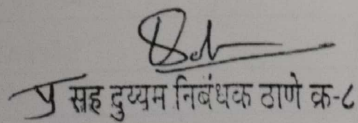 प्र सह दुय्यम निबंधक ठाणे क्र-८